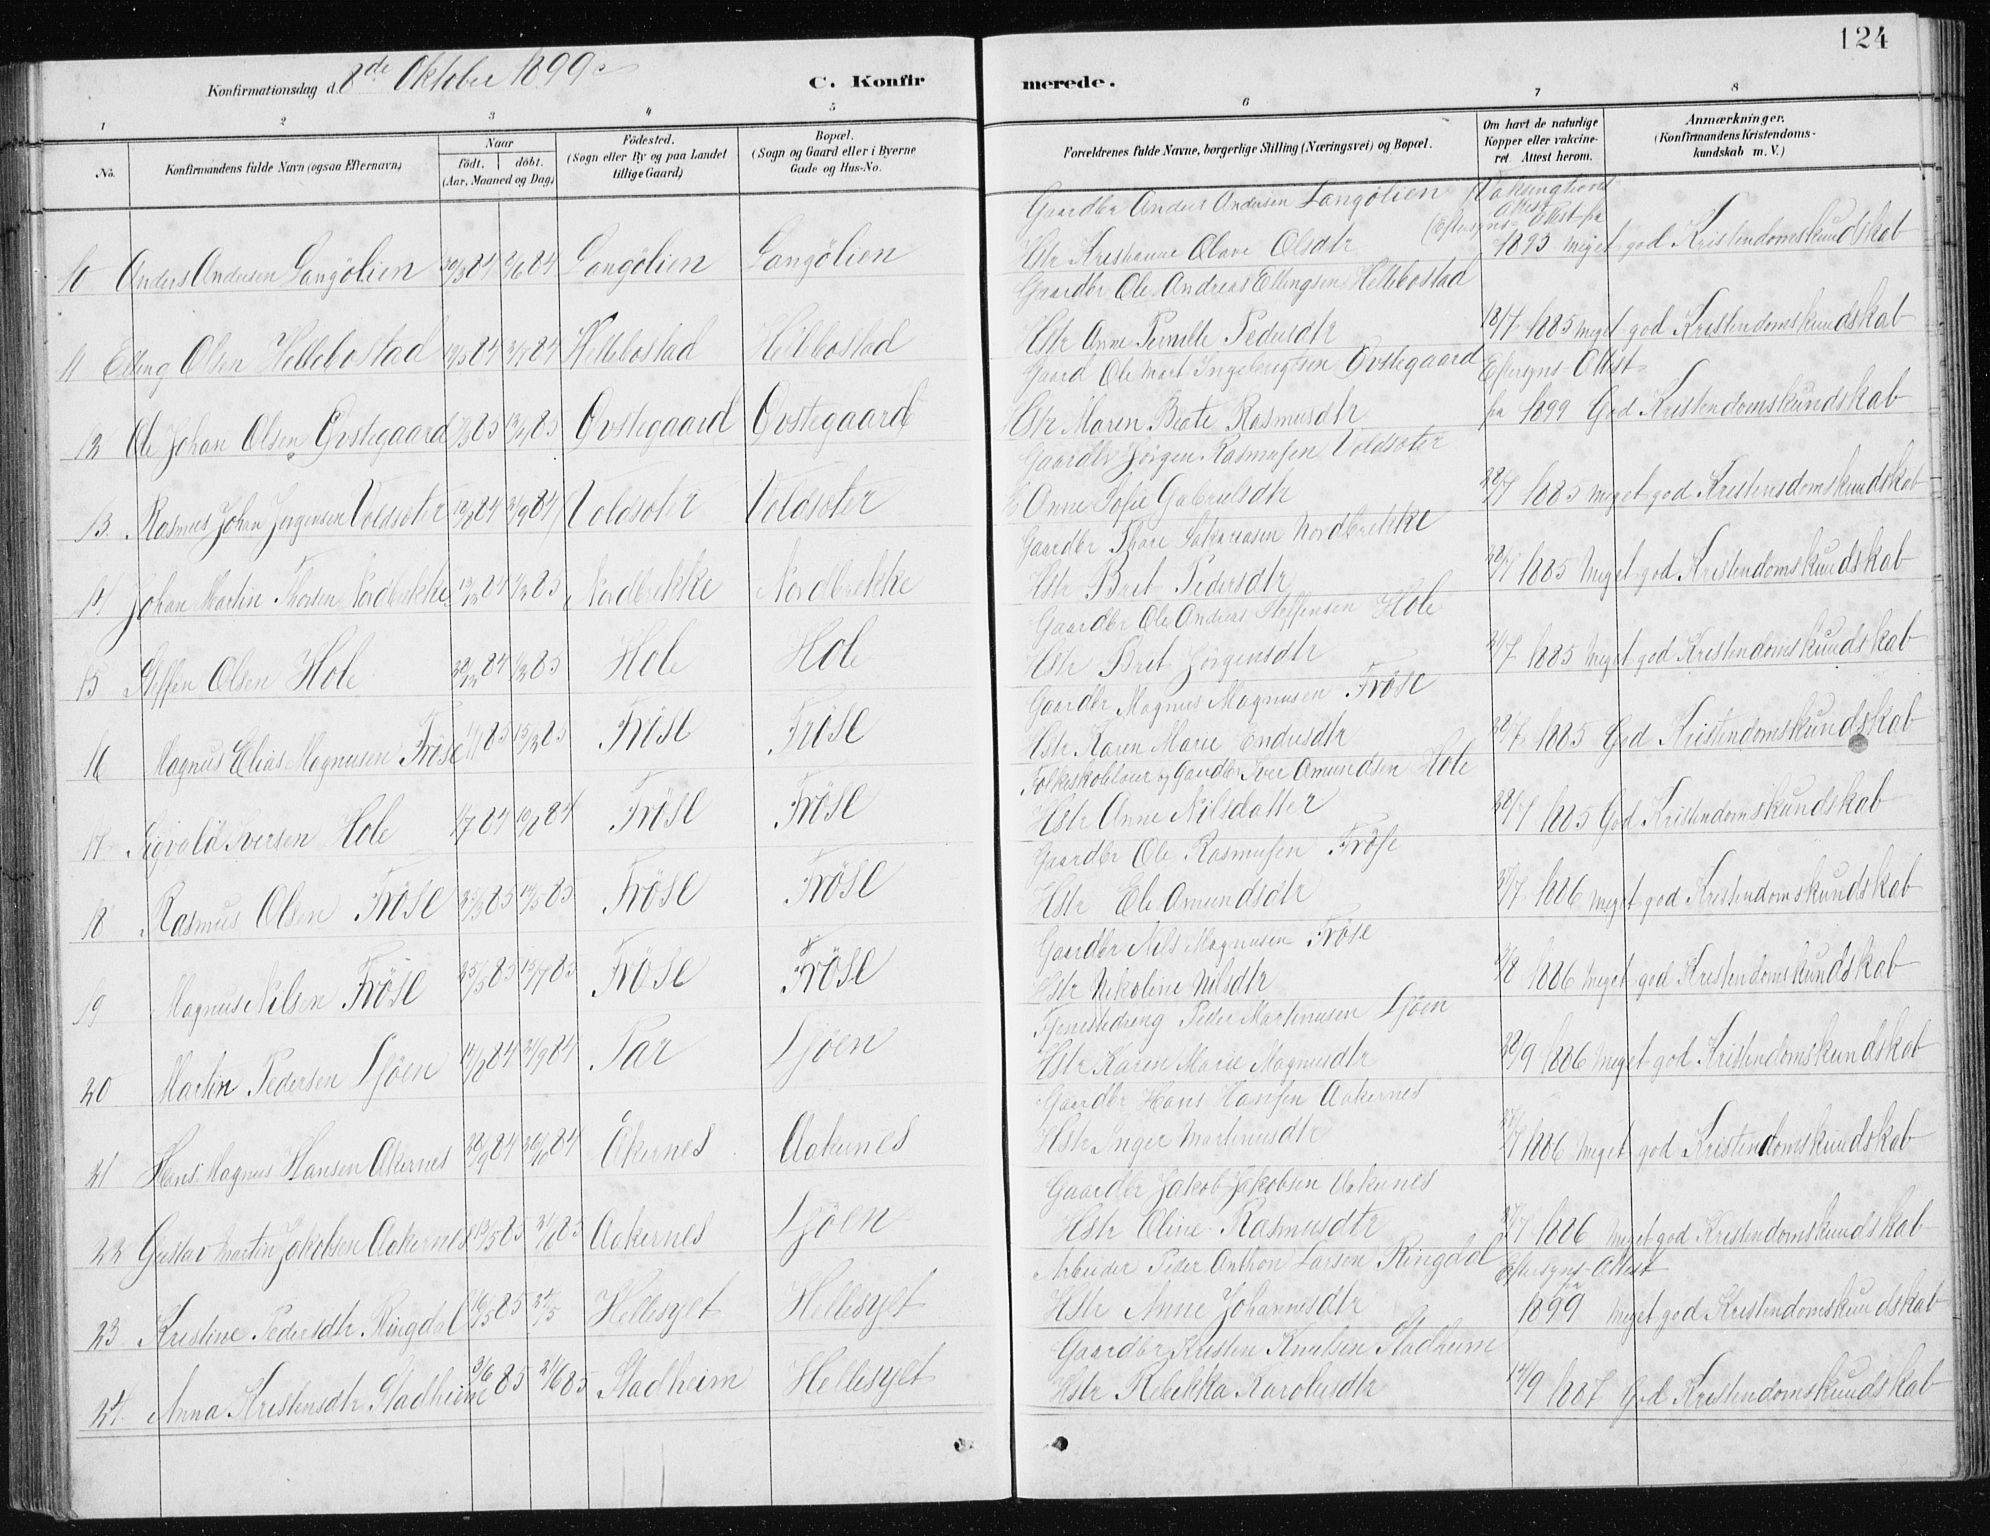 124
Konfirmationsdag d. 8de Oktober 1899
C. Konfirmerede.
1 2 3 4 5 6 7 8
No.
Konfirmandens fulde Navn (ogsaa Efternavn)
Naar
födt. döbt.
(Aar, Maaned og Dag)
Födested.
(Sogn eller By og paa Landet
tillige Gaard)
Bopæl.
(Sogn og Gaard eller i Byerne
Gade og Hus-No.
Forældrenes fulde Navne, borgerlige Stilling (Næringsvei) og Bopæl.
Om havt de naturlige
Kopper eller vakcine-
ret. Attest herom.
Anmærkninger.
(Konfirmandens Kristendoms-
kundskab m. V.)
10 Anders Andersen Langölien Langölien Langölien
Gaardbr Anders Andersen Langölien
Hstr Kristianne Olave Olsdtr 1893 Meget god Kristendomskundskab
11 Elling Olsen Hellebostad Hellebostad Hellebostad
Gaardbr Ole Andreas Ellingsen Hellebostad
Hstr Anne Pernille Pedersdtr 18/7 1885 Meget god Kristendomskundskab
12 Ole Johan Olsen Ovstegaard Ovstegaard Ovstegaard
Gaard Ole Mart Ingebrigtsen Ovstegaard Eftersyns-Attest
Hstr Maren Beate Rasmusdtr fra 1899 God Kristendomskundskab
13 Rasmus Johan Jorgensen Voldsæter Voldsæter Voldsæter
Gaardbr Jörgen Rasmusen Voldsæter
H Anne Sofie Gabrielsdtr 1885 Meget god Kristendomskundskab
14 Johan Martin Thorsen Nordbrekke Nordbrekke Nordbrekke
Gaardbr Thore Sakariasen Nordbrekke
Hstr Bret Pedersdtr 1885 Meget god Kristendomskundskab
15 Steffen Olsen Hole Hole Hole
Gaardbr Ole Andreas Steffensen Hole
Hstr Bret Jörgensdtr 1885 Meget god Kristendomskundskab
16 Magnus Elias Magnusen Fröse Fröse Fröse
Gaardbr Magnus Magnusen Fröse
Hstr Karen Marie Endresdtr 1885 God Kristendomskundskab
17 Sigvald Iversen Hole Fröse Fröse
Folkeskolelærer og Gaardbr Iver Amundsen Hole
Hstr Anne Nilsdatter 1885 God Kristendomskundskab
18 Rasmus Olsen Fröse Fröse Fröse
Gaardbr Ole Rasmusen Fröse
Hstr Eli Amundsdtr 1886 Meget god Kristendomskundskab
19 Magnus Nilsen Fröse 25/5 85 Fröse Fröse
Gaardbr Nils Magnusen Fröse
Hstr Nikoline Nilsdtr 1886 Meget god Kristendomskundskab
20 Martin Pedersen Ljöen Tar Ljöen
Tjenestedreng Peder Martinusen Ljöen
Hstr Karen Marie Magnusdtr 1886 Meget god Kristendomskundskab
21 Hans Magnus Hansen Akernes Åkernes Aakernes
Gaardbr Hans Hansen Aakernes
Hstr Inger Martinusdtr 1886 Meget god Kristendomskundskab
22 Gustav Martin Jakobsen Aakernes Aakernes Ljöen
Gaardbr Jakob Jakobsen Aakernes
Hstr Oline Rasmusdtr 1886 Meget god Kristendomskundskab
23 Kristine Pedersdtr Ringdal Hellesylt Hellesylt
Arbeider Peder Anthon Larsen Ringdal Eftersyns-Attest
Hstr Anne Johannesdtr 1899 Meget god Kristendomskundskab
24 Anna Kristensdtr Stadheim 3/6 85 21/6 85 Stadheim Hellesylt
Gaardbr Kristen Knutsen Stadheim
Hstr Rebekka Karolusdtr 14/9 1887 God Kristendomskundskab